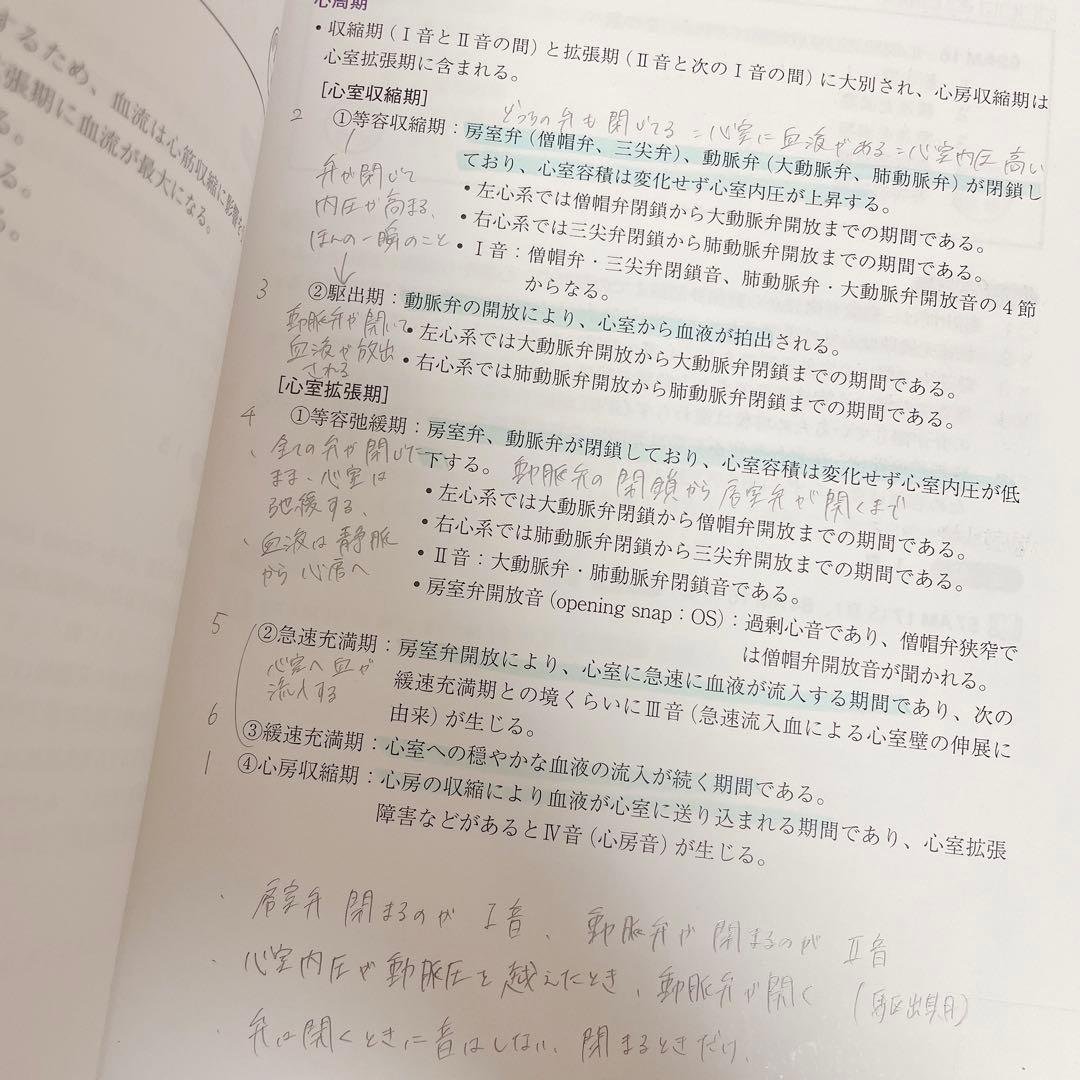 するため、血流は心筋収縮に影響を
張期に血流が最大になる。
る。
る。
る。
心周期
・収縮期（Ⅰ音とⅡ音の間）と拡張期（Ⅱ音と次のⅠ音の間）に大別され、心房収縮期は
心室拡張期に含まれる。
[心室収縮期]
どっちの弁も閉じてる＝心室に血液がある＝心室内圧高い
2 ①等容収縮期：房室弁（僧帽弁、三尖弁）、動脈弁（大動脈弁、肺動脈弁）が閉鎖し
ており、心室容積は変化せず心室内圧が上昇する。
・左心系では僧帽弁閉鎖から大動脈弁開放までの期間である。
・右心系では三尖弁閉鎖から肺動脈弁開放までの期間である。
・Ⅰ音：僧帽弁・三尖弁閉鎖音、肺動脈弁・大動脈弁開放音の4節
からなる。
弁が閉じて
内圧が高まる、
ほんの一瞬のこと
↓
3 ②駆出期：動脈弁の開放により、心室から血液が拍出される。
・左心系では大動脈弁開放から大動脈弁閉鎖までの期間である。
・右心系では肺動脈弁開放から肺動脈弁閉鎖までの期間である。
動脈弁が開いて
血液が放出
される
[心室拡張期]
4 ①等容弛緩期：房室弁、動脈弁が閉鎖しており、心室容積は変化せず心室内圧が低
下する。 動脈弁の閉鎖から房室弁が開くまで
・左心系では大動脈弁閉鎖から僧帽弁開放までの期間である。
・右心系では肺動脈弁閉鎖から三尖弁開放までの期間である。
・Ⅱ音：大動脈弁・肺動脈弁閉鎖音である。
・房室弁開放音（opening snap：OS）：過剰心音であり、僧帽弁狭窄で
は僧帽弁開放音が聞かれる。
、全ての弁が閉じた
まま、心室は
弛緩する、
、血液は静脈
から心房へ
5 ②急速充満期：房室弁開放により、心室に急速に血液が流入する期間であり、次の
緩速充満期との境くらいにⅢ音（急速流入血による心室壁の伸展に
由来）が生じる。
心室へ血が
流入する
6 ③緩速充満期：心室への穏やかな血液の流入が続く期間である。
1 ④心房収縮期：心房の収縮により血液が心室に送り込まれる期間であり、心室拡張
障害などがあるとⅣ音（心房音）が生じる。
・房室弁閉まるのがⅠ音、動脈弁が閉まるのがⅡ音
・心室内圧が動脈圧を越えたとき、動脈弁が開く（駆出期）
・弁は開くときに音はしない、閉まるときだけ、